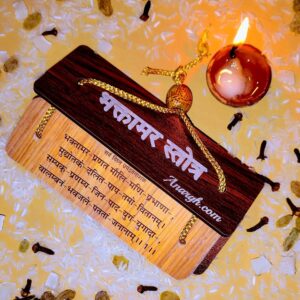 भक्तामर स्तोत्र
Anargh.com
भक्तामर-प्रणत-मौलि-मणि-प्रभाणा-
मुद्योतकं-दलित-पाप-तमो-वितानम्।
सम्यक्-प्रणम्य-जिन-पाद-युगं-युगादा-
वालम्बनं-भवजले-पततां-जनानाम्।।१।।